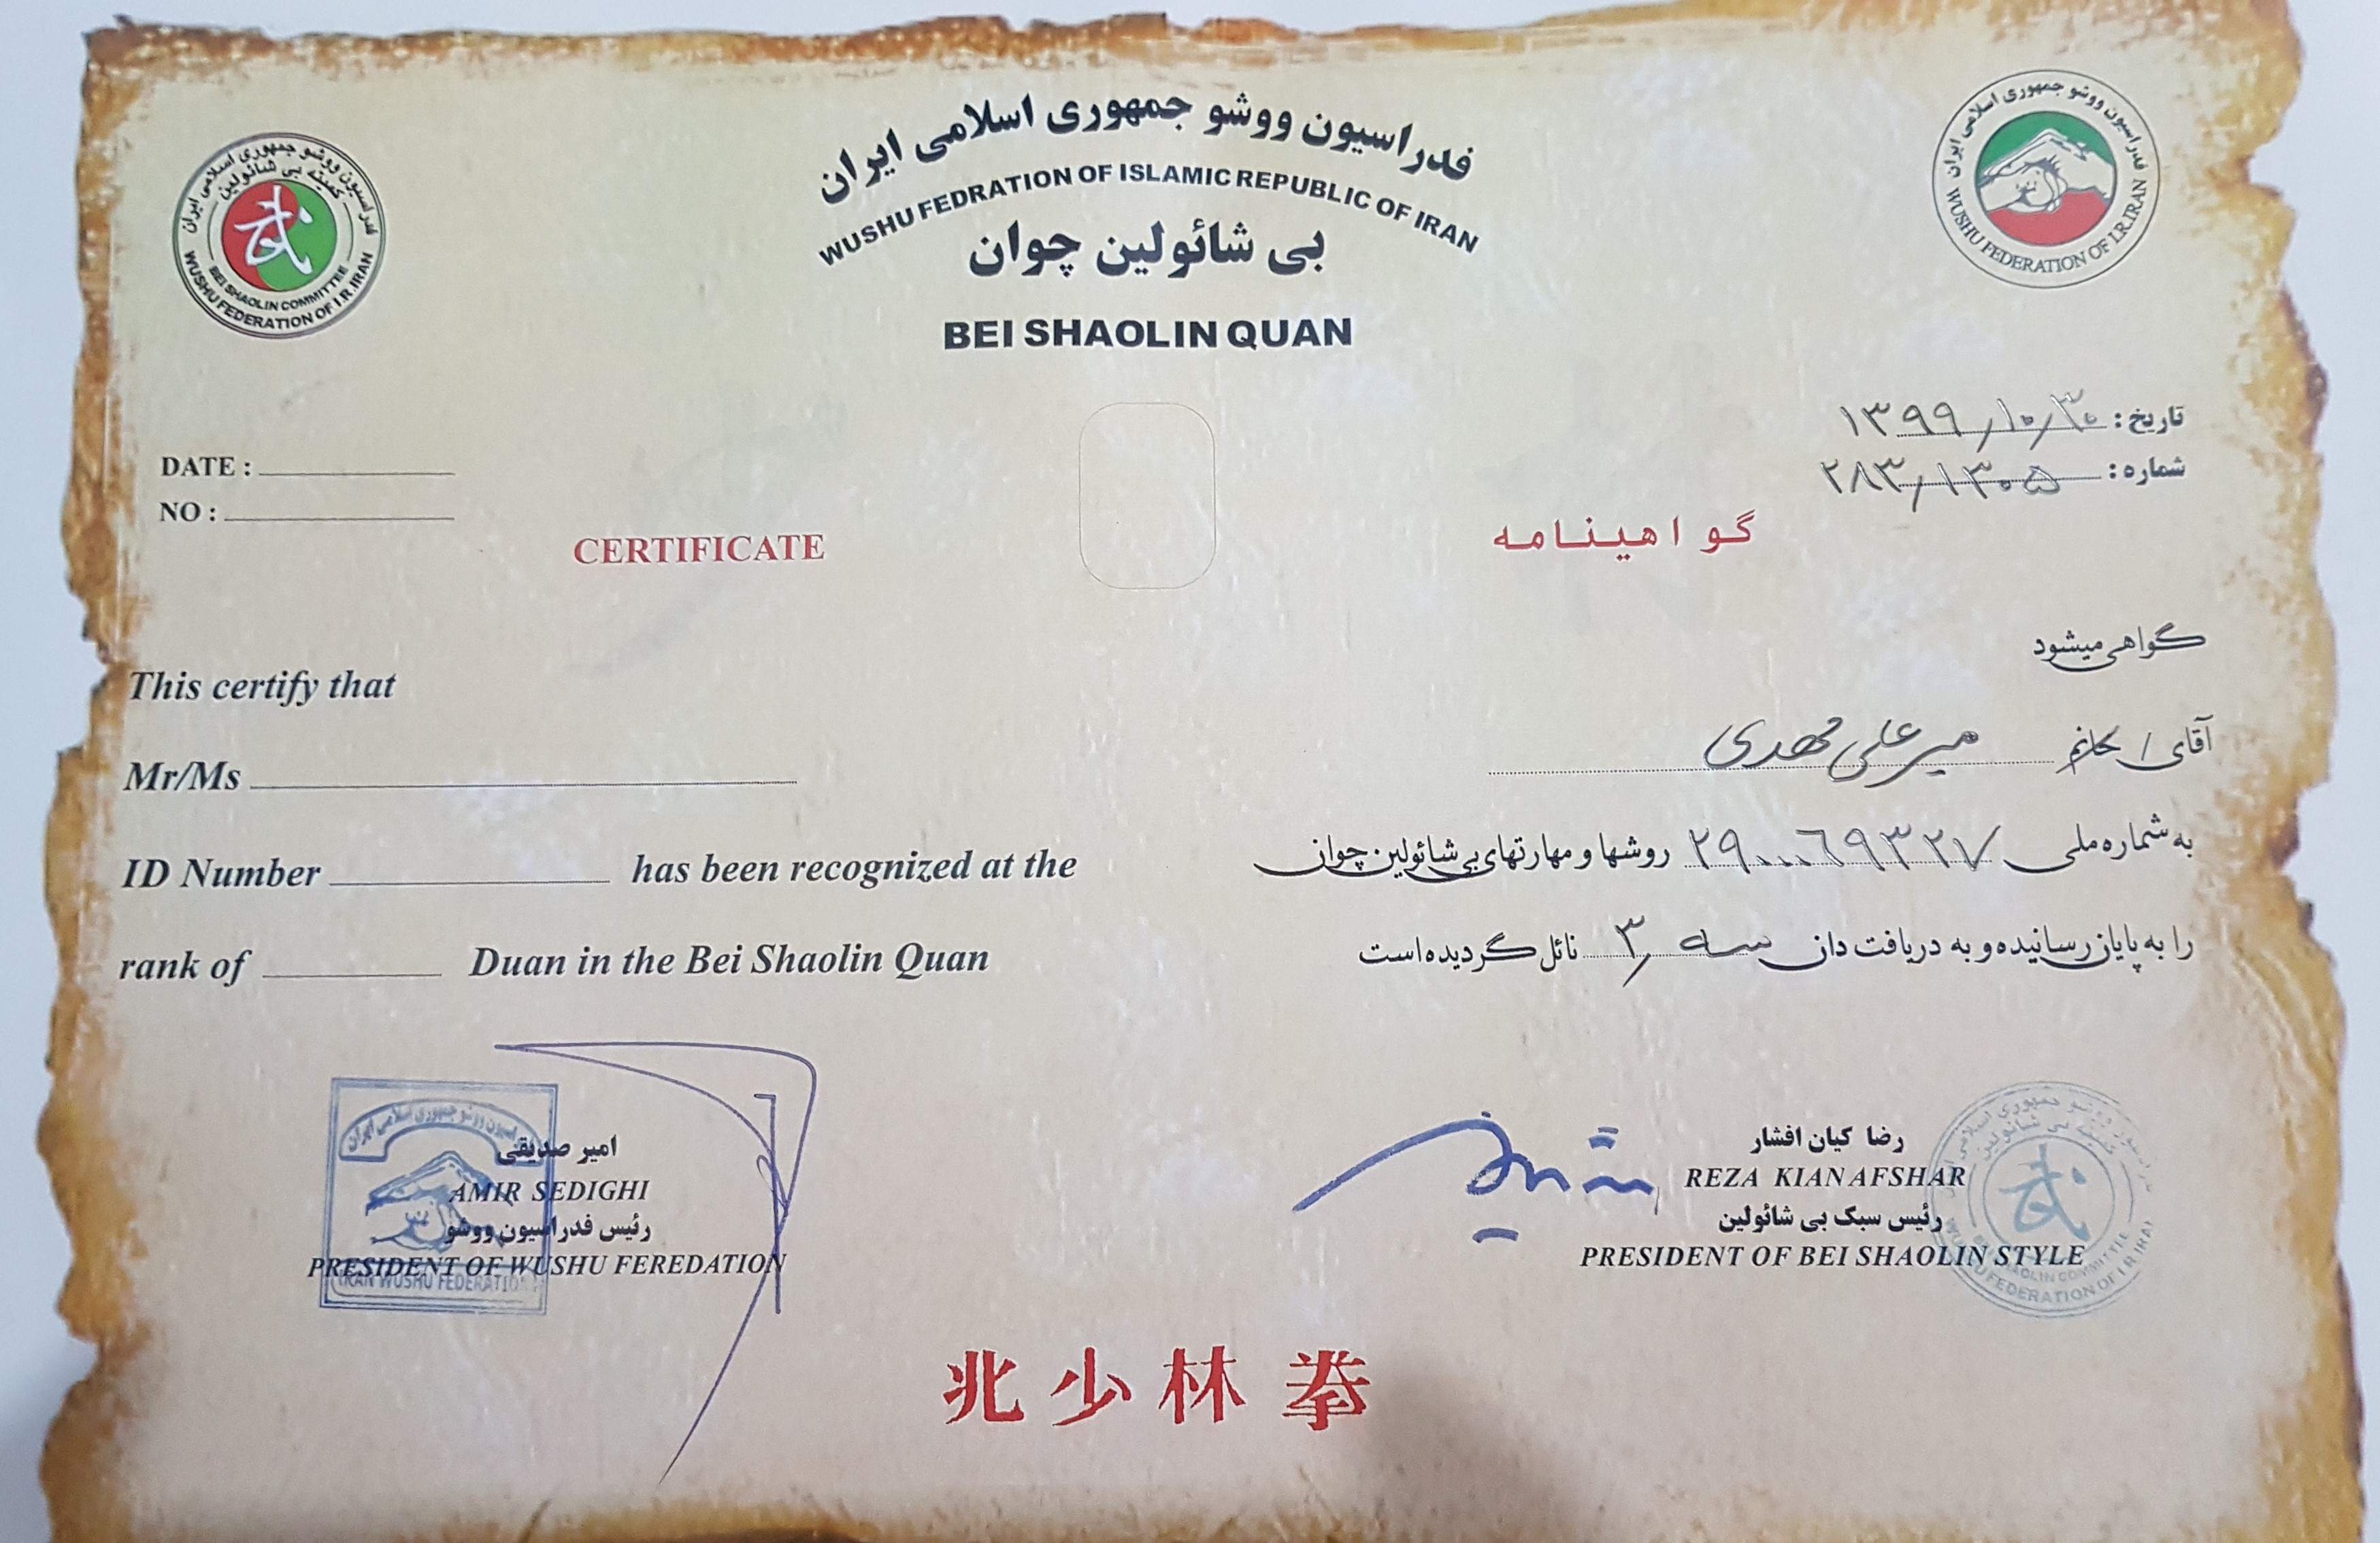 فدراسیون ووشو جمهوری اسلامی ایران
WUSHU FEDRATION OF ISLAMIC REPUBLIC OF IRAN
بی شائولین چوان
BEI SHAOLIN QUAN
فدراسیون ووشو جمهوری اسلامی ایران
کمیته بی شائولین
BEI SHAOLIN COMMITTEE
WUSHU FEDERATION OF I.R.IRAN
فدراسیون ووشو جمهوری اسلامی ایران
WUSHU FEDERATION OF I.R.IRAN
تاریخ: ۱۳۹۹/۱۰/۳۰
شماره: ۲۸۳/۱۳۰۵
DATE :
NO :
CERTIFICATE
گواهینامه
گواهی میشود
آقای / خانم میرعلی مهدی
به شماره ملی ۲۹۰۰۰۶۹۳۲۷ روشها و مهارتهای بی شائولین چوان
را به پایان رسانیده و به دریافت دان سه ۳ نائل گردیده است
This certify that
Mr/Ms
ID Number has been recognized at the
rank of Duan in the Bei Shaolin Quan
امیر صدیقی
AMIR SEDIGHI
رئیس فدراسیون ووشو
PRESIDENT OF WUSHU FEREDATION
IRAN WUSHU FEDERATION
رضا کیان افشار
REZA KIAN AFSHAR
رئیس سبک بی شائولین
PRESIDENT OF BEI SHAOLIN STYLE
北少林拳